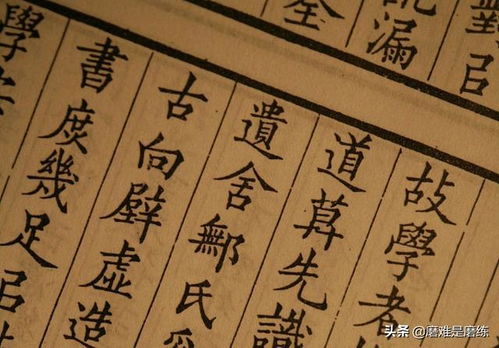 對㠯
漏
故學者
道先識
遺舍鄦氏
古向壁虛造
書庶幾足㠯
學
头条 @磨难是磨练